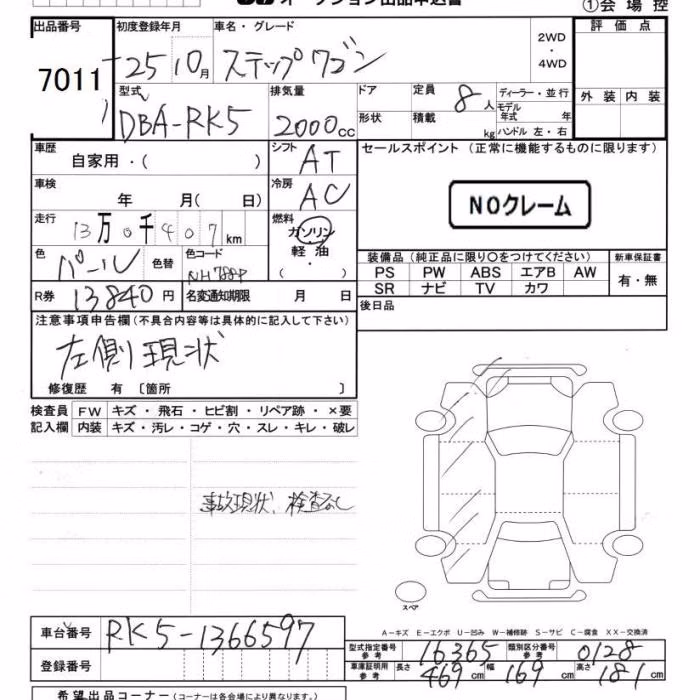 オークション出品申込書
①会場控
出品番号 7011
初度登録年月 25 10月
車名・グレード ステップワゴン
2WD・4WD
評価点
外装 内装
型式 DBA-RK5
排気量 2000cc
ドア
形状
定員 8人
積載 kg
ディーラー・並行
モデル年式 年
ハンドル 左・右
車歴 自家用・( )
シフト AT
セールスポイント (正常に機能するものに限ります)
NOクレーム
車検 年 月(日)
冷房 AC
走行 13万0千407km
燃料 ガソリン・軽油・( )
色 パール 色替
色コード NH788P
装備品 (純正品に限り〇をつけてください)
PS PW ABS エアB AW
SR ナビ TV カワ
新車保証書 有・無
R券 13840円
名変通知期限 月 日
後日品
注意事項申告欄(不具合内容等は具体的に記入して下さい)
左側現状
修復歴 有 〔箇所 〕
検査員記入欄
FW キズ・飛石・ヒビ割・リペア跡・×要
内装 キズ・汚レ・コゲ・穴・スレ・キレ・破レ
事故現状、検査なし
スペア
A-キズ E-エクボ U-凹み W-補修跡 S-サビ C-腐食 XX-交換済
車台番号 RK5-1366597
登録番号
型式指定番号参考 16365
類別区分番号参考 0128
車庫証明用参考 長さ 469cm 幅 169cm 高さ 181cm
希望出品コーナー (コーナーは各会場により異なります。)